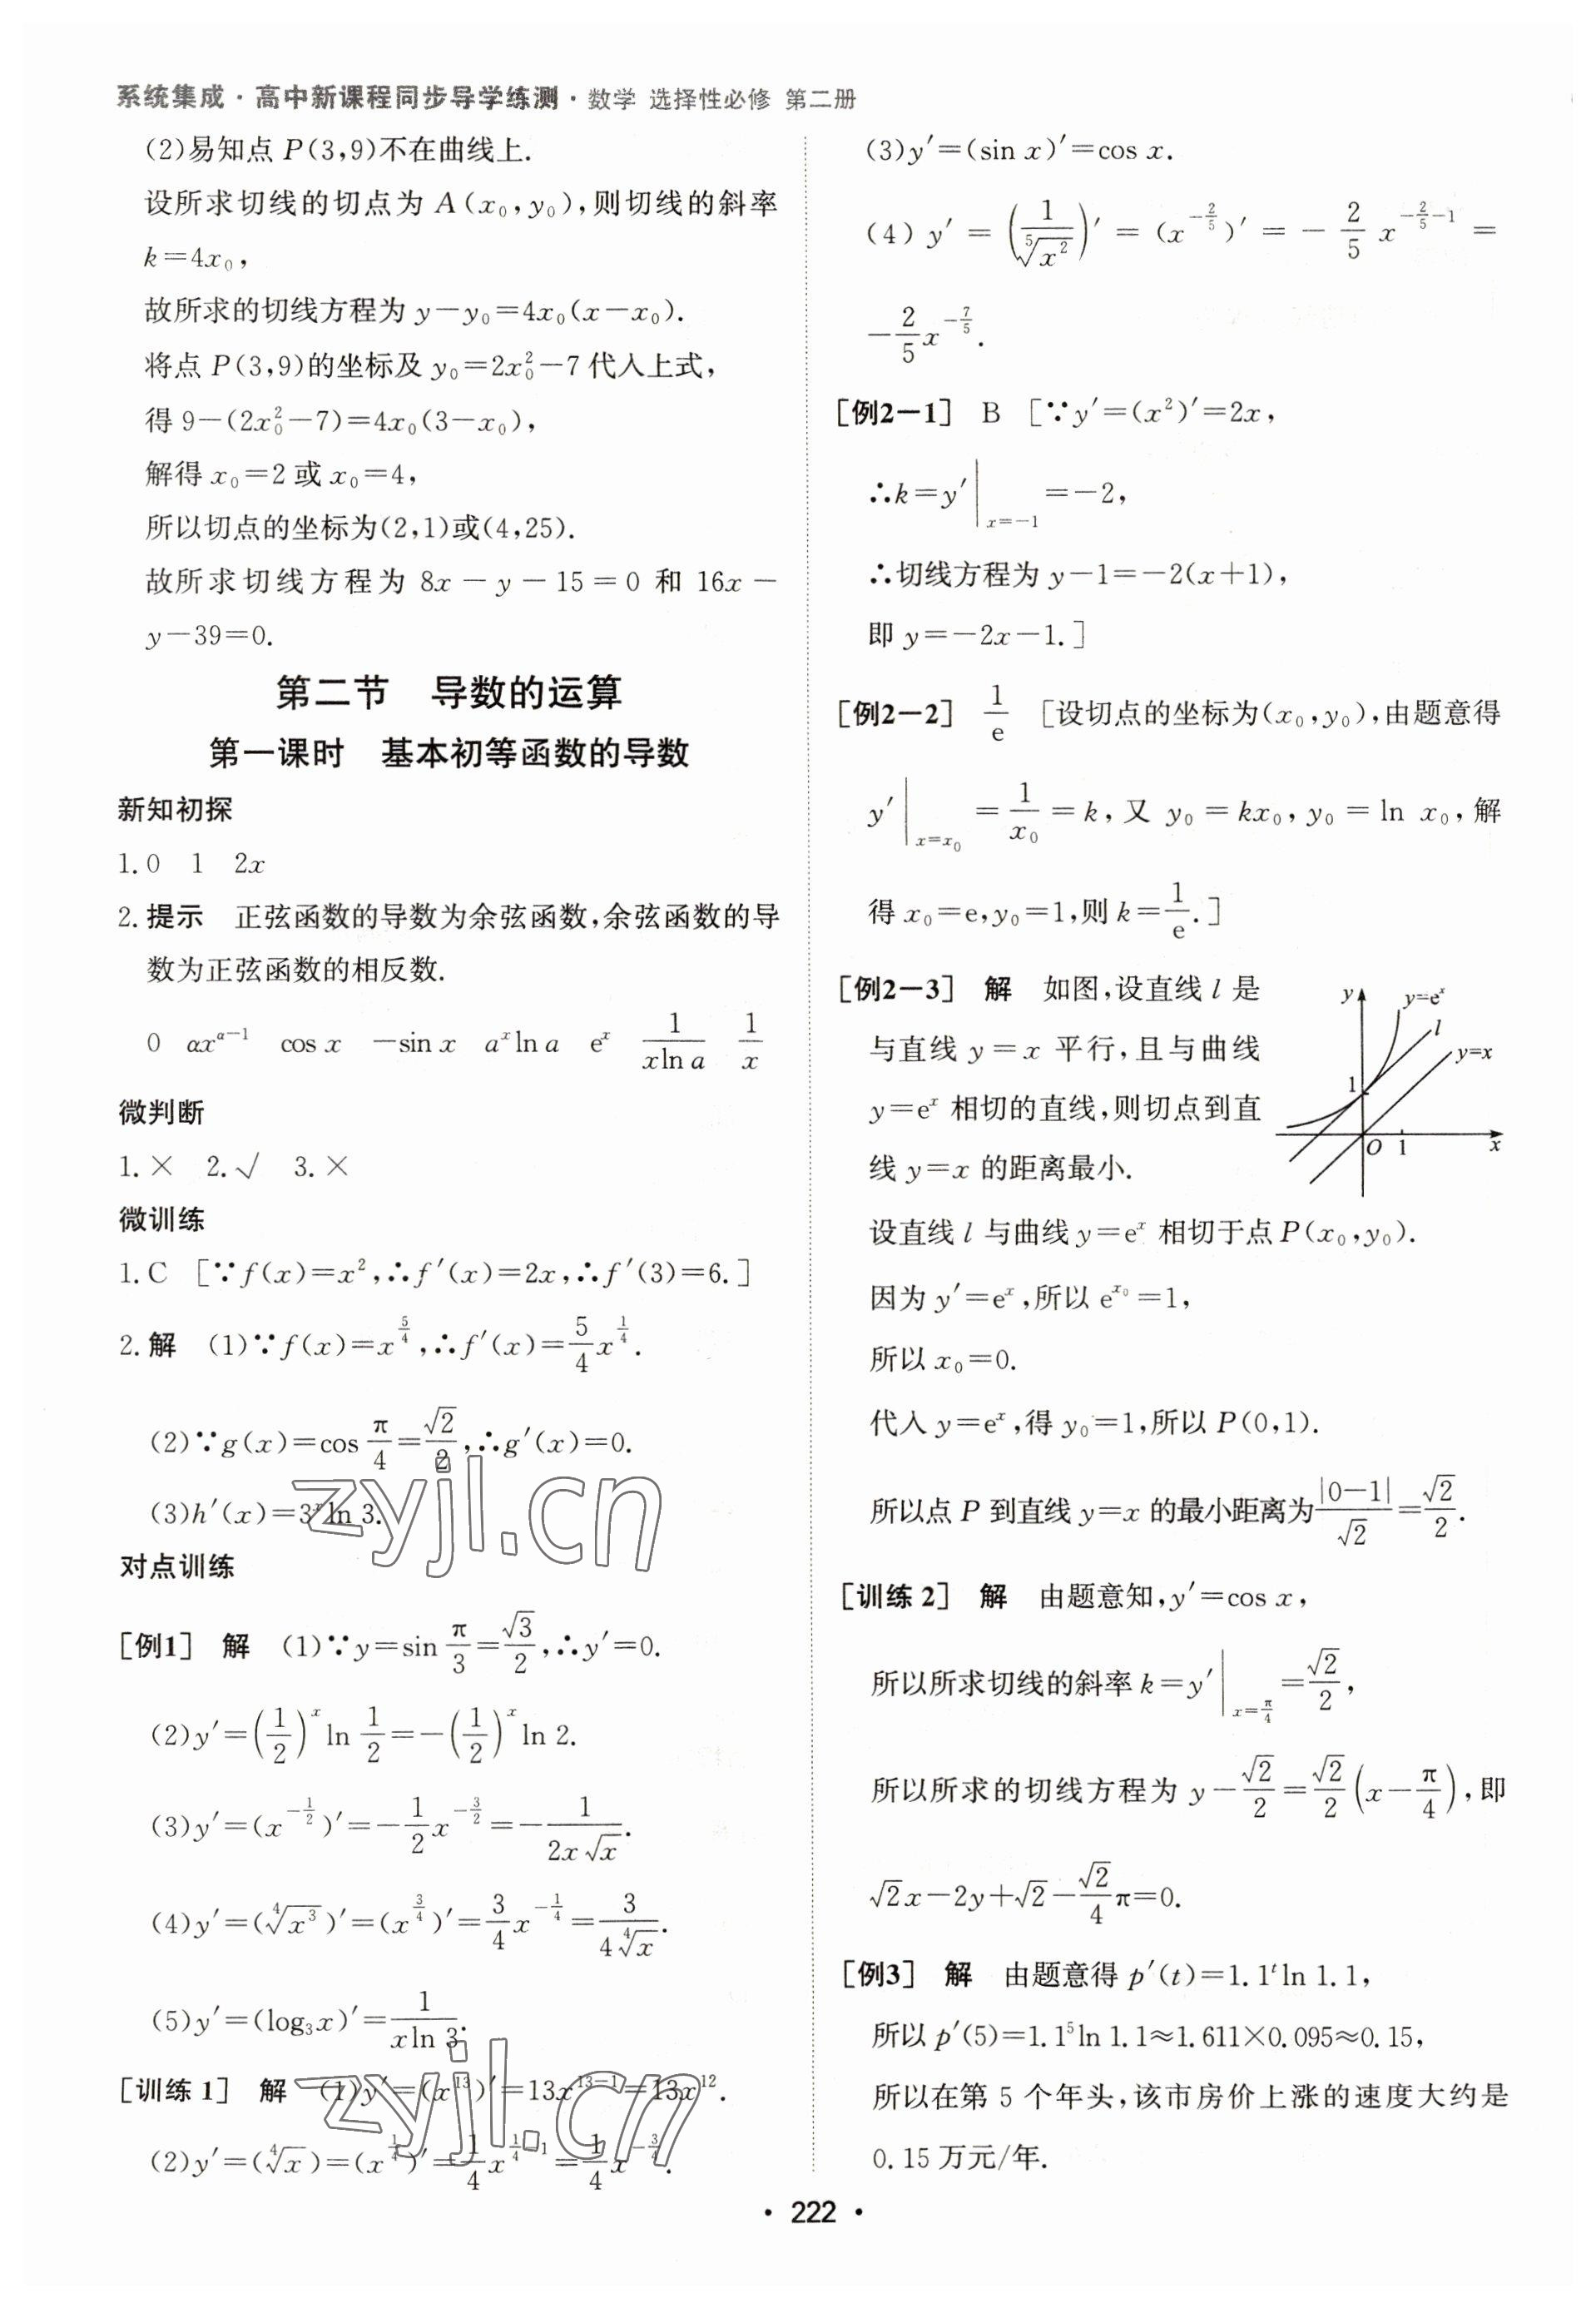 系统集成·高中新课程同步导学练测·数学 选择性必修 第二册
(2)易知点 P(3,9)不在曲线上.
设所求切线的切点为 A(x₀,y₀),则切线的斜率
k=4x₀,
故所求的切线方程为 y-y₀=4x₀(x-x₀).
将点 P(3,9)的坐标及 y₀=2x₀²-7 代入上式,
得 9-(2x₀²-7)=4x₀(3-x₀),
解得 x₀=2 或 x₀=4,
所以切点的坐标为(2,1)或(4,25).
故所求切线方程为 8x-y-15=0 和 16x-
y-39=0.
第二节 导数的运算
第一课时 基本初等函数的导数
新知初探
1.0 1 2x
2.提示 正弦函数的导数为余弦函数,余弦函数的导
数为正弦函数的相反数.
0 αx^(α-1) cos x -sin x aˣln a eˣ 1/(xln a) 1/x
微判断
1.× 2.√ 3.×
微训练
1.C [∵f(x)=x²,∴f′(x)=2x,∴f′(3)=6.]
2.解 (1)∵f(x)=x^(5/4),∴f′(x)=5/4 x^(1/4).
(2)∵g(x)=cos π/4=√2/2,∴g′(x)=0.
(3)h′(x)=3ˣln 3.
zyjl.cn
对点训练
[例1] 解 (1)∵y=sin π/3=√3/2,∴y′=0.
(2)y′=(1/2)ˣln 1/2=-(1/2)ˣln 2.
(3)y′=(x^(-1/2))′=-1/2 x^(-3/2)=-1/(2x√x).
(4)y′=(⁴√x³)′=(x^(3/4))′=3/4 x^(-1/4)=3/(4⁴√x).
(5)y′=(log₃x)′=1/(xln 3).
[训练 1] 解 (1)y′=(x¹³)′=13x^(13-1)=13x¹².
(2)y′=(⁴√x)=(x^(1/4))′=1/4 x^(1/4-1)=1/4 x^(-3/4).
zyjl.cn
(3)y′=(sin x)′=cos x.
(4)y′=(1/⁵√x²)′=(x^(-2/5))′=-2/5 x^(-2/5-1)=
-2/5 x^(-7/5).
[例2-1] B [∵y′=(x²)′=2x,
∴k=y′|x=-1=-2,
∴切线方程为 y-1=-2(x+1),
即 y=-2x-1.]
[例2-2] 1/e [设切点的坐标为(x₀,y₀),由题意得
y′|x=x₀=1/x₀=k,又 y₀=kx₀,y₀=ln x₀,解
得 x₀=e,y₀=1,则 k=1/e.]
[例2-3] 解 如图,设直线 l 是
与直线 y=x 平行,且与曲线
y=eˣ 相切的直线,则切点到直
线 y=x 的距离最小.
y
y=eˣ
l
y=x
1
O 1 x
设直线 l 与曲线 y=eˣ 相切于点 P(x₀,y₀).
因为 y′=eˣ,所以 e^(x₀)=1,
所以 x₀=0.
代入 y=eˣ,得 y₀=1,所以 P(0,1).
所以点 P 到直线 y=x 的最小距离为|0-1|/√2=√2/2.
[训练 2] 解 由题意知,y′=cos x,
所以所求切线的斜率 k=y′|x=π/4=√2/2,
所以所求的切线方程为 y-√2/2=√2/2(x-π/4),即
√2x-2y+√2-√2/4π=0.
[例3] 解 由题意得 p′(t)=1.1ᵗln 1.1,
所以 p′(5)=1.1⁵ln 1.1≈1.611×0.095≈0.15,
所以在第 5 个年头,该市房价上涨的速度大约是
0.15 万元/年.
· 222 ·